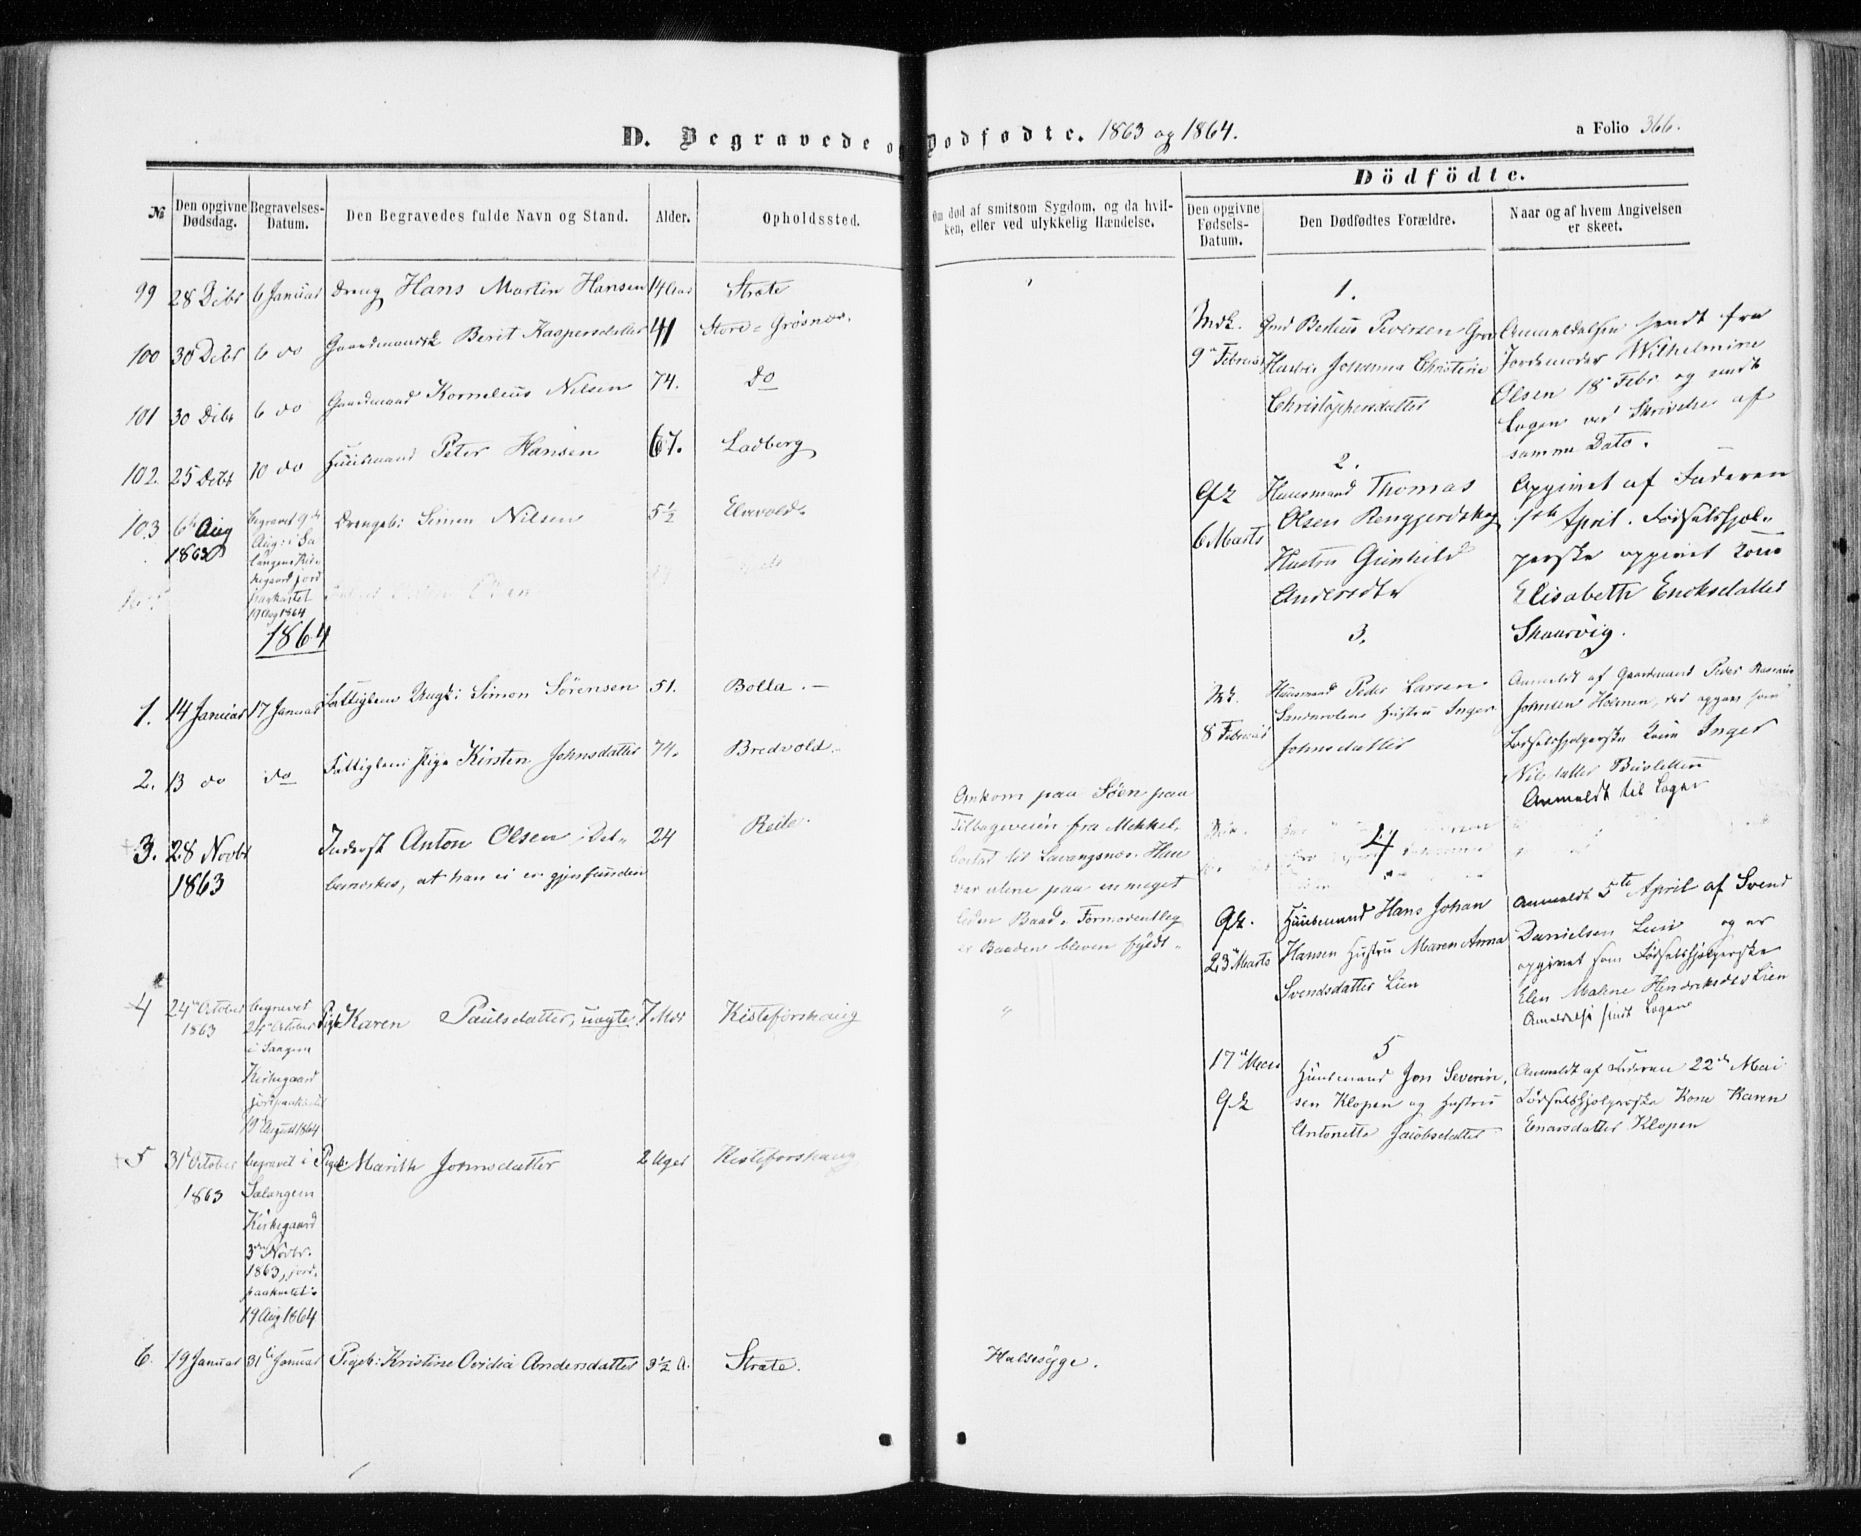 D. Begravede og Dødfødte. 1863 og 1864.
a Folio 366.
№
Den opgivne Dødsdag.
Begravelses-Datum.
Den Begravedes fulde Navn og Stand.
Alder.
Opholdssted.
Om død af smitsom Sygdom, og da hvil-
ken, eller ved ulykkelig Hændelse.
Dödfödte.
Den opgivne Fødsels-Datum.
Den Dødfødtes Forældre.
Naar og af hvem Angivelsen er skeet.
99 28 Debr 6 Januar Dreng Hans Martin Hansen 14 Aar Strate
100 30 Debr 6 do Gaardmandsk Berit Kaspersdatter 41 Store-Grøsnes.
101 30 Debr 6 do Gaardmand Kornelius Nilsen 74. Do
102. 25 Debr 10 do Huusmand Peter Hansen 67. Ladberg
103 6te Aug 1863 begravet 9de Drengeb: Simon Nilsen 5½ Elvevold
Aug: i Sa-
langens Kir-
kegaard jord-
paakastet
19 Aug 1864
1864
1. 14 Januar 17 Januar Fattiglem Simon Sörensen 51. Bolla.
2. 13 do do Fattiglem Pige Kirsten Johnsdatter 74. Bredvold
3. 28 Novbr Inderst Anton Olsen. Det 24 Reite.
1863 bemærkes, at han ei er gjenfunden
Ankom paa Søen paa
Tilbageveien fra
til Lavangsnæs. Han
var alene paa en meget
liden Baad. Formodentleg
er Baaden bleven fyldt
4 24de October 1863 begravet Pigeb Karen Paulsdatter, uægte 7 Mdr Kisteforshaug "
24de October
i Saangen
Kirkegaard
jordpaakastet
19 August 1864
5 31te October 1863 begravet i Pigeb: Marith Jonsdatter 2 Uger Kisteforshaug
Salangens
Kirkegaard
3die Novbr.
1863, jord-
paakastet
19 Aug 1864
6. 19 Januar 31te Januar Pigeb: Kristine Ovidia Andersdatter 3½ A. Strate. Halssyge.
1.
Mdk.
9de Februar
Gmd Petersen
Hustru Johanna Christine
Christophersdatter
Anmeldelsen sendt fra
Jordemoder Wilhelmine
Olsen 18de Febr og sendt
Lagen ved Skrivelse af
samme Dato.
2.
Qk
6 Marts
Huusmand Thomas
Olsen
Hustru Gunhild
Andersdtr
Opgivet af Faderen
April. Fødselshjæl-
perske opgivet Kone
Elisabeth Eriksdatter
Skaarvig.
3.
Mk.
8 Februar
Huusmand Peder Larsen
Hustru Inger
Johnsdatter
Anmeldt af Gaardmand Peder Rasmus
Johnsen Holmen, der opgav som
Fødselshjelperske Kone Inger
Nilsdatter
Anmeldt til Lagen
4
Qk.
23de Marts
Huusmand Hans Johan
Hansen Hustru Maren Anna
Svendsdatter Lien
Anmeldt 5te April af Svend
Danielsen Lien og er
opgivet som Fødselshjelperske
Elen Malene Hendriksdtr Lien
Anmeldelse sendt Lagen
5
17de
Qk
Huusmand Jon Severin-
sen Klopen og Hustru
Antonette Jacobsdatter
Anmeldt af Faderen 22de Mai
Fødselshjelperske Kone Karen
Enarsdatter Klopen